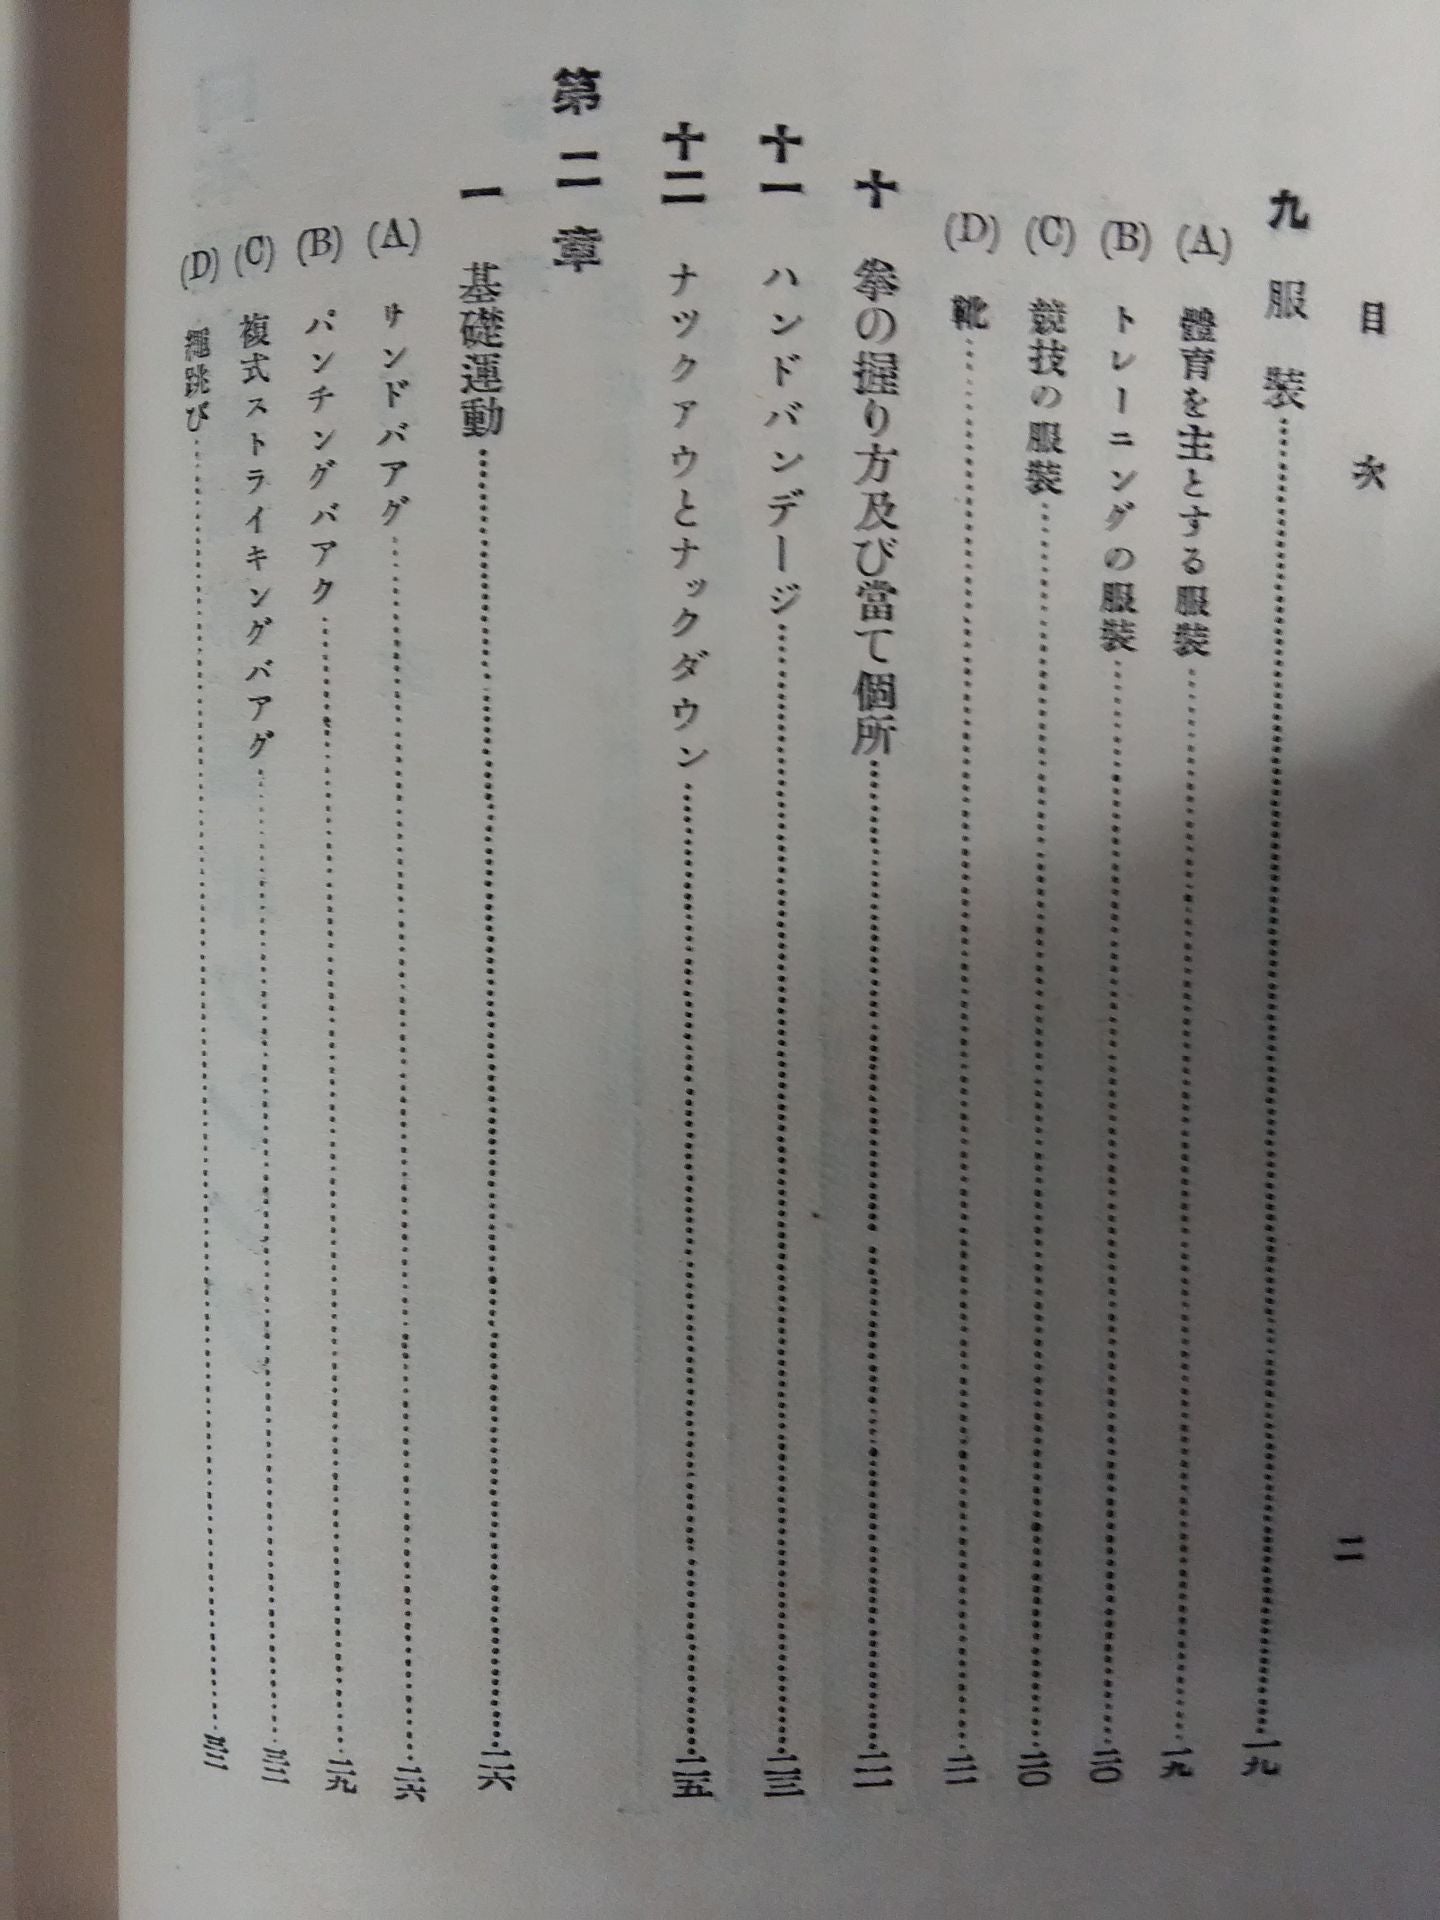 目次 二
九 服装……一九
(A) 體育を主とする服裝……一九
(B) トレーニングの服裝……二〇
(C) 競技の服裝……二〇
(D) 靴……二一
十 拳の握り方及び當て個所……二一
十一 ハンドバンデージ……二三
十二 ナツクアウとナックダウン……二五
第二章
一 基礎運動……二六
(A) サンドバアグ……二六
(B) パンチングバアク……二九
(C) 複式ストライキングバアグ
(D) 繩跳び